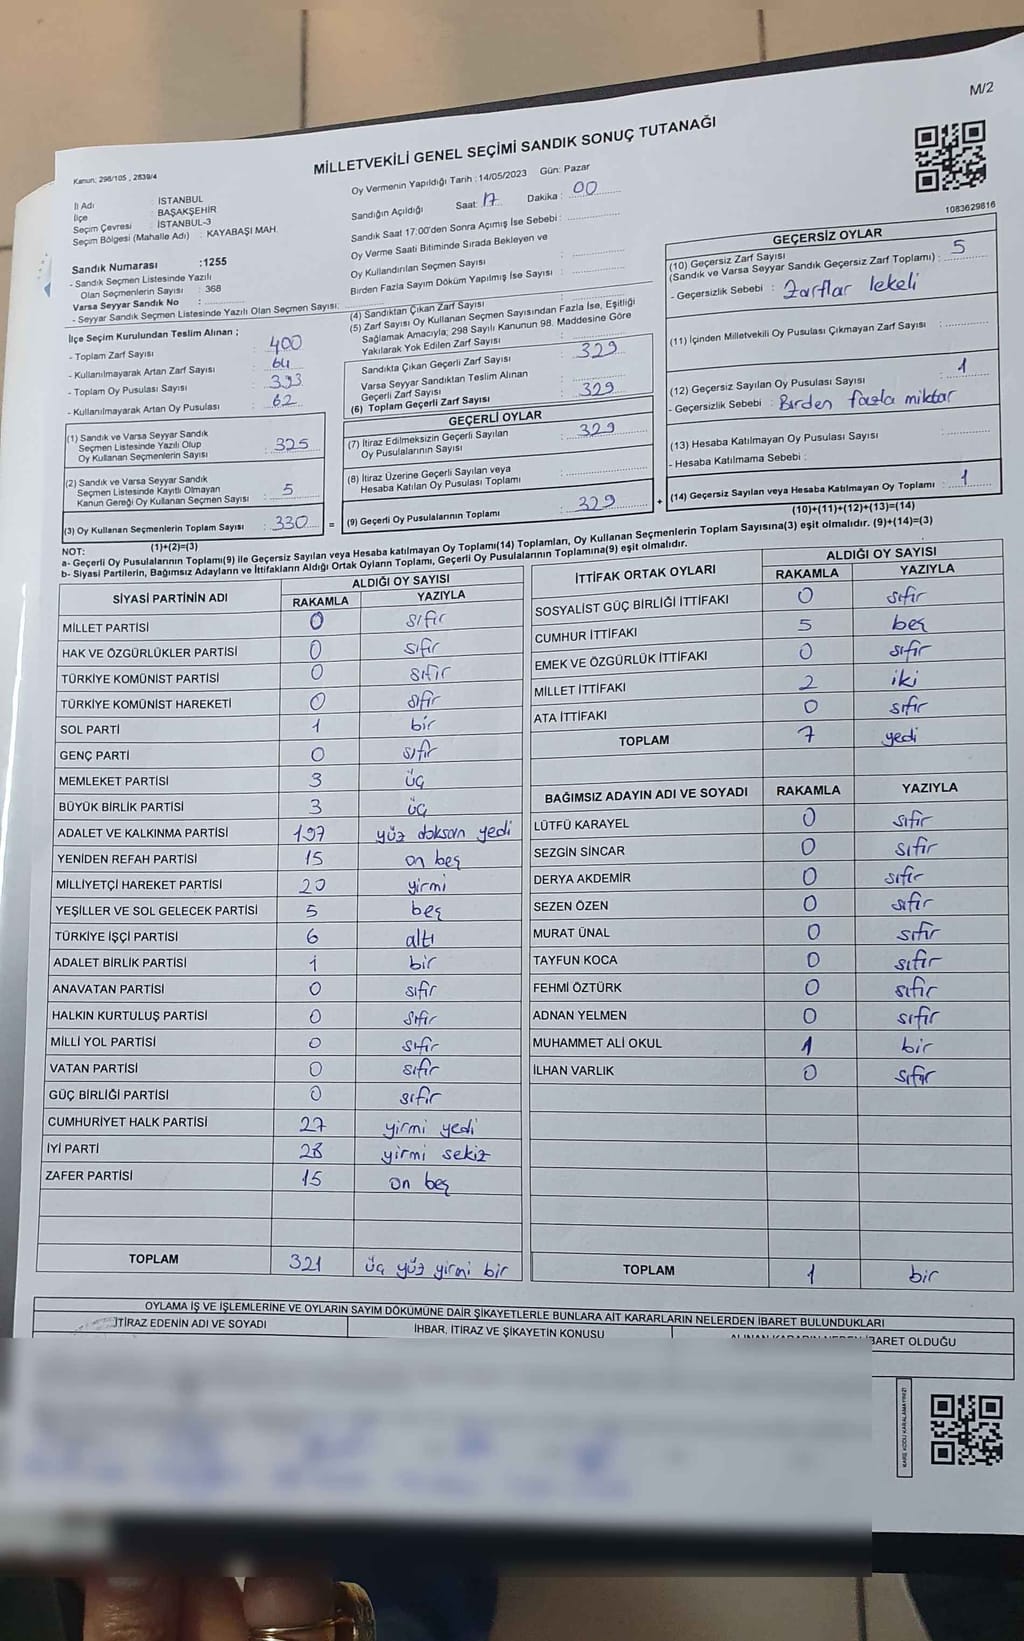 M/2
MİLLETVEKİLİ GENEL SEÇİMİ SANDIK SONUÇ TUTANAĞI
Kanun: 298/105 , 2839/4
İl Adı : İSTANBUL
İlçe : BAŞAKŞEHİR
Seçim Çevresi : İSTANBUL-3
Seçim Bölgesi (Mahalle Adı) : KAYABAŞI MAH.
Sandık Numarası :1255
- Sandık Seçmen Listesinde Yazılı
Olan Seçmenlerin Sayısı : 368
Varsa Seyyar Sandık No :
- Seyyar Sandık Seçmen Listesinde Yazılı Olan Seçmen Sayısı:
İlçe Seçim Kurulundan Teslim Alınan ;
- Toplam Zarf Sayısı : 400
- Kullanılmayarak Artan Zarf Sayısı : 64
- Toplam Oy Pusulası Sayısı : 393
- Kullanılmayarak Artan Oy Pusulası : 62
(1) Sandık ve Varsa Seyyar Sandık
Seçmen Listesinde Yazılı Olup
Oy Kullanan Seçmenlerin Sayısı : 325
(2) Sandık ve Varsa Seyyar Sandık
Seçmen Listesinde Kayıtlı Olmayan
Kanun Gereği Oy Kullanan Seçmen Sayısı : 5
(3) Oy Kullanan Seçmenlerin Toplam Sayısı : 330 =
(1)+(2)=(3)
Oy Vermenin Yapıldığı Tarih : 14/05/2023 Gün: Pazar
Sandığın Açıldığı Saat: 17 Dakika : 00
Sandık Saat 17:00'den Sonra Açımış İse Sebebi :
Oy Verme Saati Bitiminde Sırada Bekleyen ve
Oy Kullandırılan Seçmen Sayısı :
Birden Fazla Sayım Döküm Yapılmış İse Sayısı :
(4) Sandıktan Çıkan Zarf Sayısı :
(5) Zarf Sayısı Oy Kullanan Seçmen Sayısından Fazla İse, Eşitliği
Sağlamak Amacıyla; 298 Sayılı Kanunun 98. Maddesine Göre
Yakılarak Yok Edilen Zarf Sayısı :
Sandıkta Çıkan Geçerli Zarf Sayısı : 329
Varsa Seyyar Sandıktan Teslim Alınan
Geçerli Zarf Sayısı :
(6) Toplam Geçerli Zarf Sayısı : 329
GEÇERLİ OYLAR
(7) İtiraz Edilmeksizin Geçerli Sayılan
Oy Pusulalarının Sayısı : 329
(8) İtiraz Üzerine Geçerli Sayılan veya
Hesaba Katılan Oy Pusulası Toplamı :
(9) Geçerli Oy Pusulalarının Toplamı : 329 +
1083629816
GEÇERSİZ OYLAR
(10) Geçersiz Zarf Sayısı
(Sandık ve Varsa Seyyar Sandık Geçersiz Zarf Toplamı) : 5
- Geçersizlik Sebebi : Zarflar lekeli
(11) İçinden Milletvekili Oy Pusulası Çıkmayan Zarf Sayısı :
(12) Geçersiz Sayılan Oy Pusulası Sayısı : 1
- Geçersizlik Sebebi : Birden fazla miktar
(13) Hesaba Katılmayan Oy Pusulası Sayısı :
- Hesaba Katılmama Sebebi :
(14) Geçersiz Sayılan veya Hesaba Katılmayan Oy Toplamı : 1
(10)+(11)+(12)+(13)=(14)
NOT:
a- Geçerli Oy Pusulalarının Toplamı(9) ile Geçersiz Sayılan veya Hesaba katılmayan Oy Toplamı(14) Toplamları, Oy Kullanan Seçmenlerin Toplam Sayısına(3) eşit olmalıdır. (9)+(14)=(3)
b- Siyasi Partilerin, Bağımsız Adayların ve İttifakların Aldığı Ortak Oyların Toplamı, Geçerli Oy Pusulalarının Toplamına(9) eşit olmalıdır.
SİYASİ PARTİNİN ADI ALDIĞI OY SAYISI
RAKAMLA YAZIYLA
MİLLET PARTİSİ 0 sıfır
HAK VE ÖZGÜRLÜKLER PARTİSİ 0 sıfır
TÜRKİYE KOMÜNİST PARTİSİ 0 sıfır
TÜRKİYE KOMÜNİST HAREKETİ 0 sıfır
SOL PARTİ 1 bir
GENÇ PARTİ 0 sıfır
MEMLEKET PARTİSİ 3 üç
BÜYÜK BİRLİK PARTİSİ 3 üç
ADALET VE KALKINMA PARTİSİ 197 yüz doksan yedi
YENİDEN REFAH PARTİSİ 15 on beş
MİLLİYETÇİ HAREKET PARTİSİ 20 yirmi
YEŞİLLER VE SOL GELECEK PARTİSİ 5 beş
TÜRKİYE İŞÇİ PARTİSİ 6 altı
ADALET BİRLİK PARTİSİ 1 bir
ANAVATAN PARTİSİ 0 sıfır
HALKIN KURTULUŞ PARTİSİ 0 sıfır
MİLLİ YOL PARTİSİ 0 sıfır
VATAN PARTİSİ 0 sıfır
GÜÇ BİRLİĞİ PARTİSİ 0 sıfır
CUMHURİYET HALK PARTİSİ 27 yirmi yedi
İYİ PARTİ 28 yirmi sekiz
ZAFER PARTİSİ 15 on beş
TOPLAM 321 üç yüz yirmi bir
İTTİFAK ORTAK OYLARI ALDIĞI OY SAYISI
RAKAMLA YAZIYLA
SOSYALİST GÜÇ BİRLİĞİ İTTİFAKI 0 sıfır
CUMHUR İTTİFAKI 5 beş
EMEK VE ÖZGÜRLÜK İTTİFAKI 0 sıfır
MİLLET İTTİFAKI 2 iki
ATA İTTİFAKI 0 sıfır
TOPLAM 7 yedi
BAĞIMSIZ ADAYIN ADI VE SOYADI RAKAMLA YAZIYLA
LÜTFÜ KARAYEL 0 sıfır
SEZGİN SİNCAR 0 sıfır
DERYA AKDEMİR 0 sıfır
SEZEN ÖZEN 0 sıfır
MURAT ÜNAL 0 sıfır
TAYFUN KOCA 0 sıfır
FEHMİ ÖZTÜRK 0 sıfır
ADNAN YELMEN 0 sıfır
MUHAMMET ALİ OKUL 1 bir
İLHAN VARLIK 0 sıfır
TOPLAM 1 bir
OYLAMA İŞ VE İŞLEMLERİNE VE OYLARIN SAYIM DÖKÜMÜNE DAİR ŞİKAYETLERLE BUNLARA AİT KARARLARIN NELERDEN İBARET BULUNDUKLARI
İTİRAZ EDENİN ADI VE SOYADI İHBAR, İTİRAZ VE ŞİKAYETİN KONUSU OLDUĞU
KARE KODU KARALAMAYINIZ!